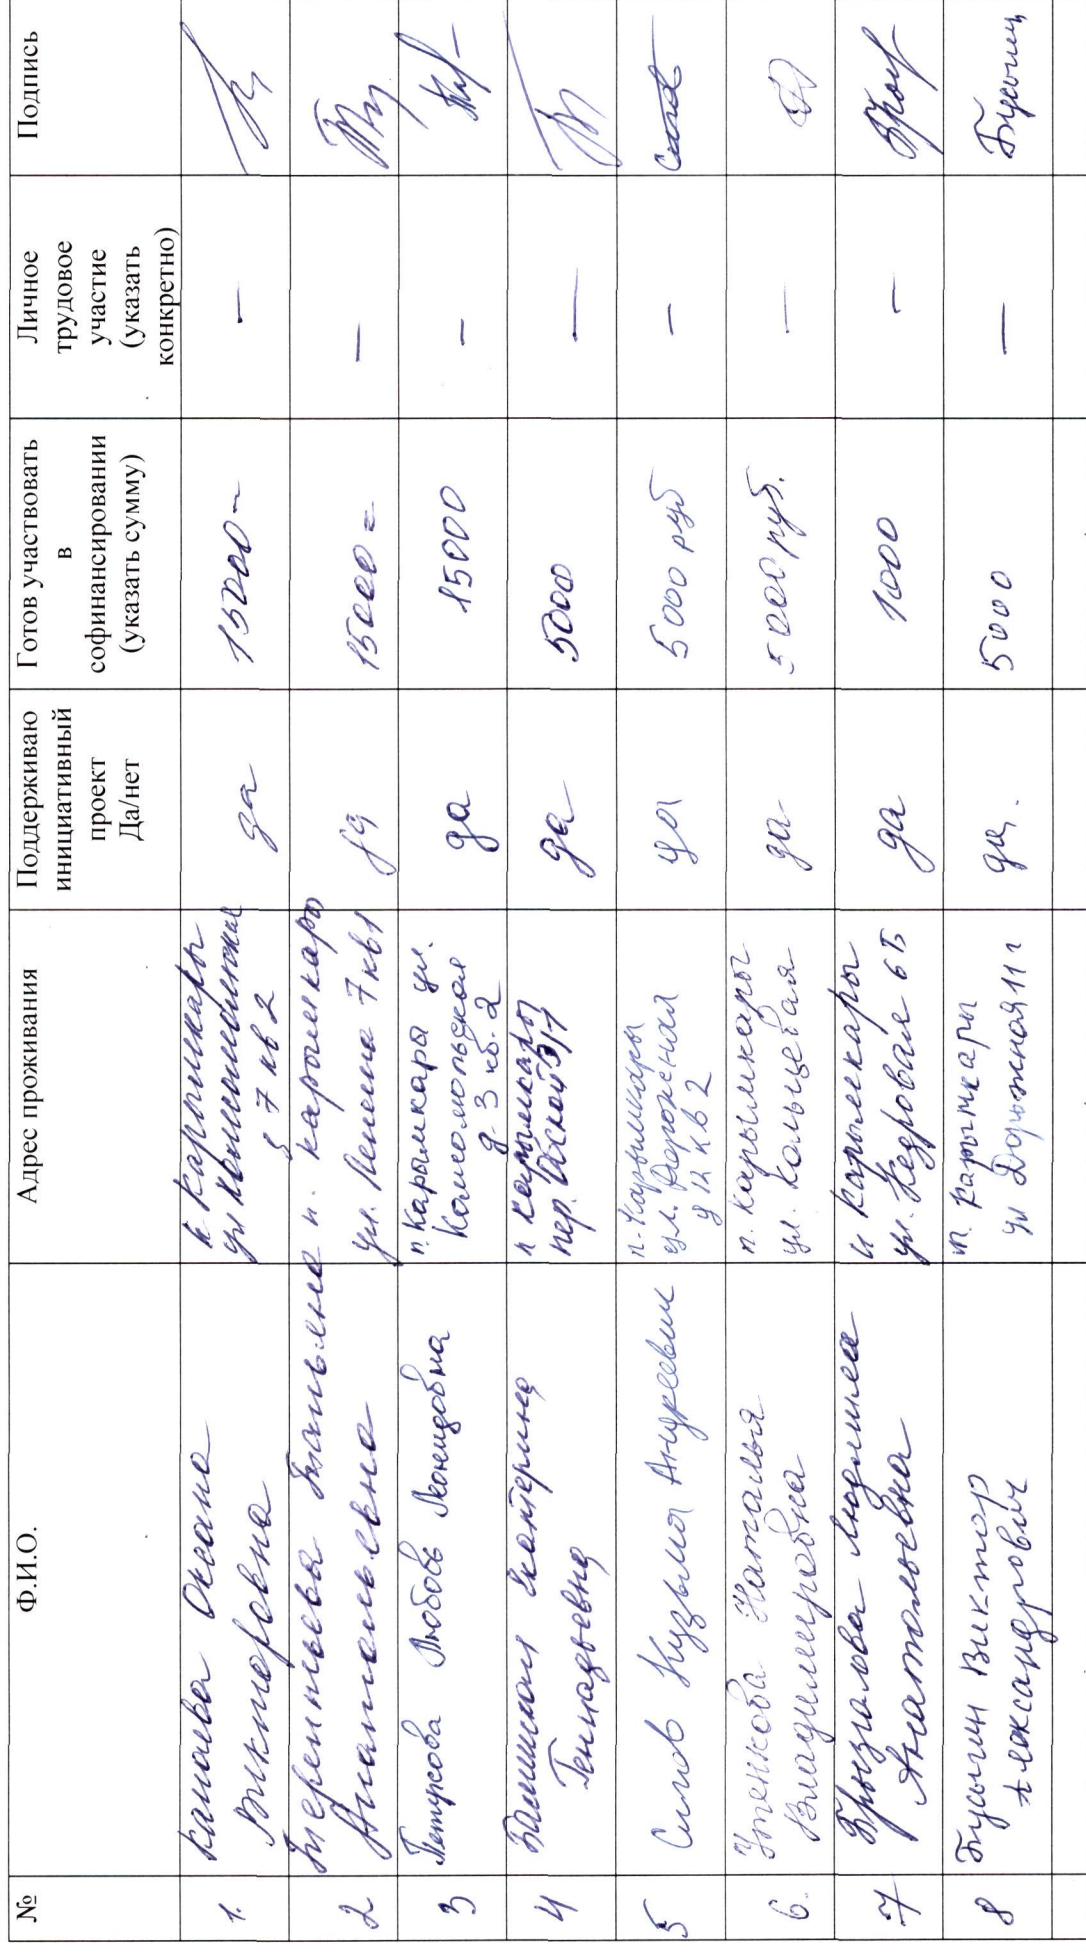 №
Ф.И.О.
Адрес проживания
Поддерживаю
инициативный
проект
Да/нет
Готов участвовать
в
софинансировании
(указать сумму)
Личное
трудовое
участие
(указать
конкретно)
Подпись
1.
Оксана
Викторовна
п Карымкары
ул Комсомольская
д 7 кв 2
да
15000-
–
2
Терентьева Татьяна
Анатольевна
п. Карымкары
ул. Ленина 7 кв 1
да
15000=
–
3
Петухова Любовь Леонидовна
п. Карымкары ул.
Комсомольская
д. 3 кв. 2
да
15000
–
4
Екатерина
Геннадьевна
п Карымкары
пер.
да
5000
–
5
Силов Кузьма Андреевич
п. Карымкары
ул. Дорожная
д 12 кв 2
да
5000 руб
–
6.
Утенкова Наталья
Владимировна
п. Карымкары
ул. Кольцевая
да
5000 руб.
–
7
Брызгалова Людмила
Анатольевна
п Карымкары
ул. Кедровая 6Б
да
1000
–
8
Бусыгин Виктор
Александрович
п. Карымкары
ул Дорожная 11 г
да.
5000
–
Бусыгин